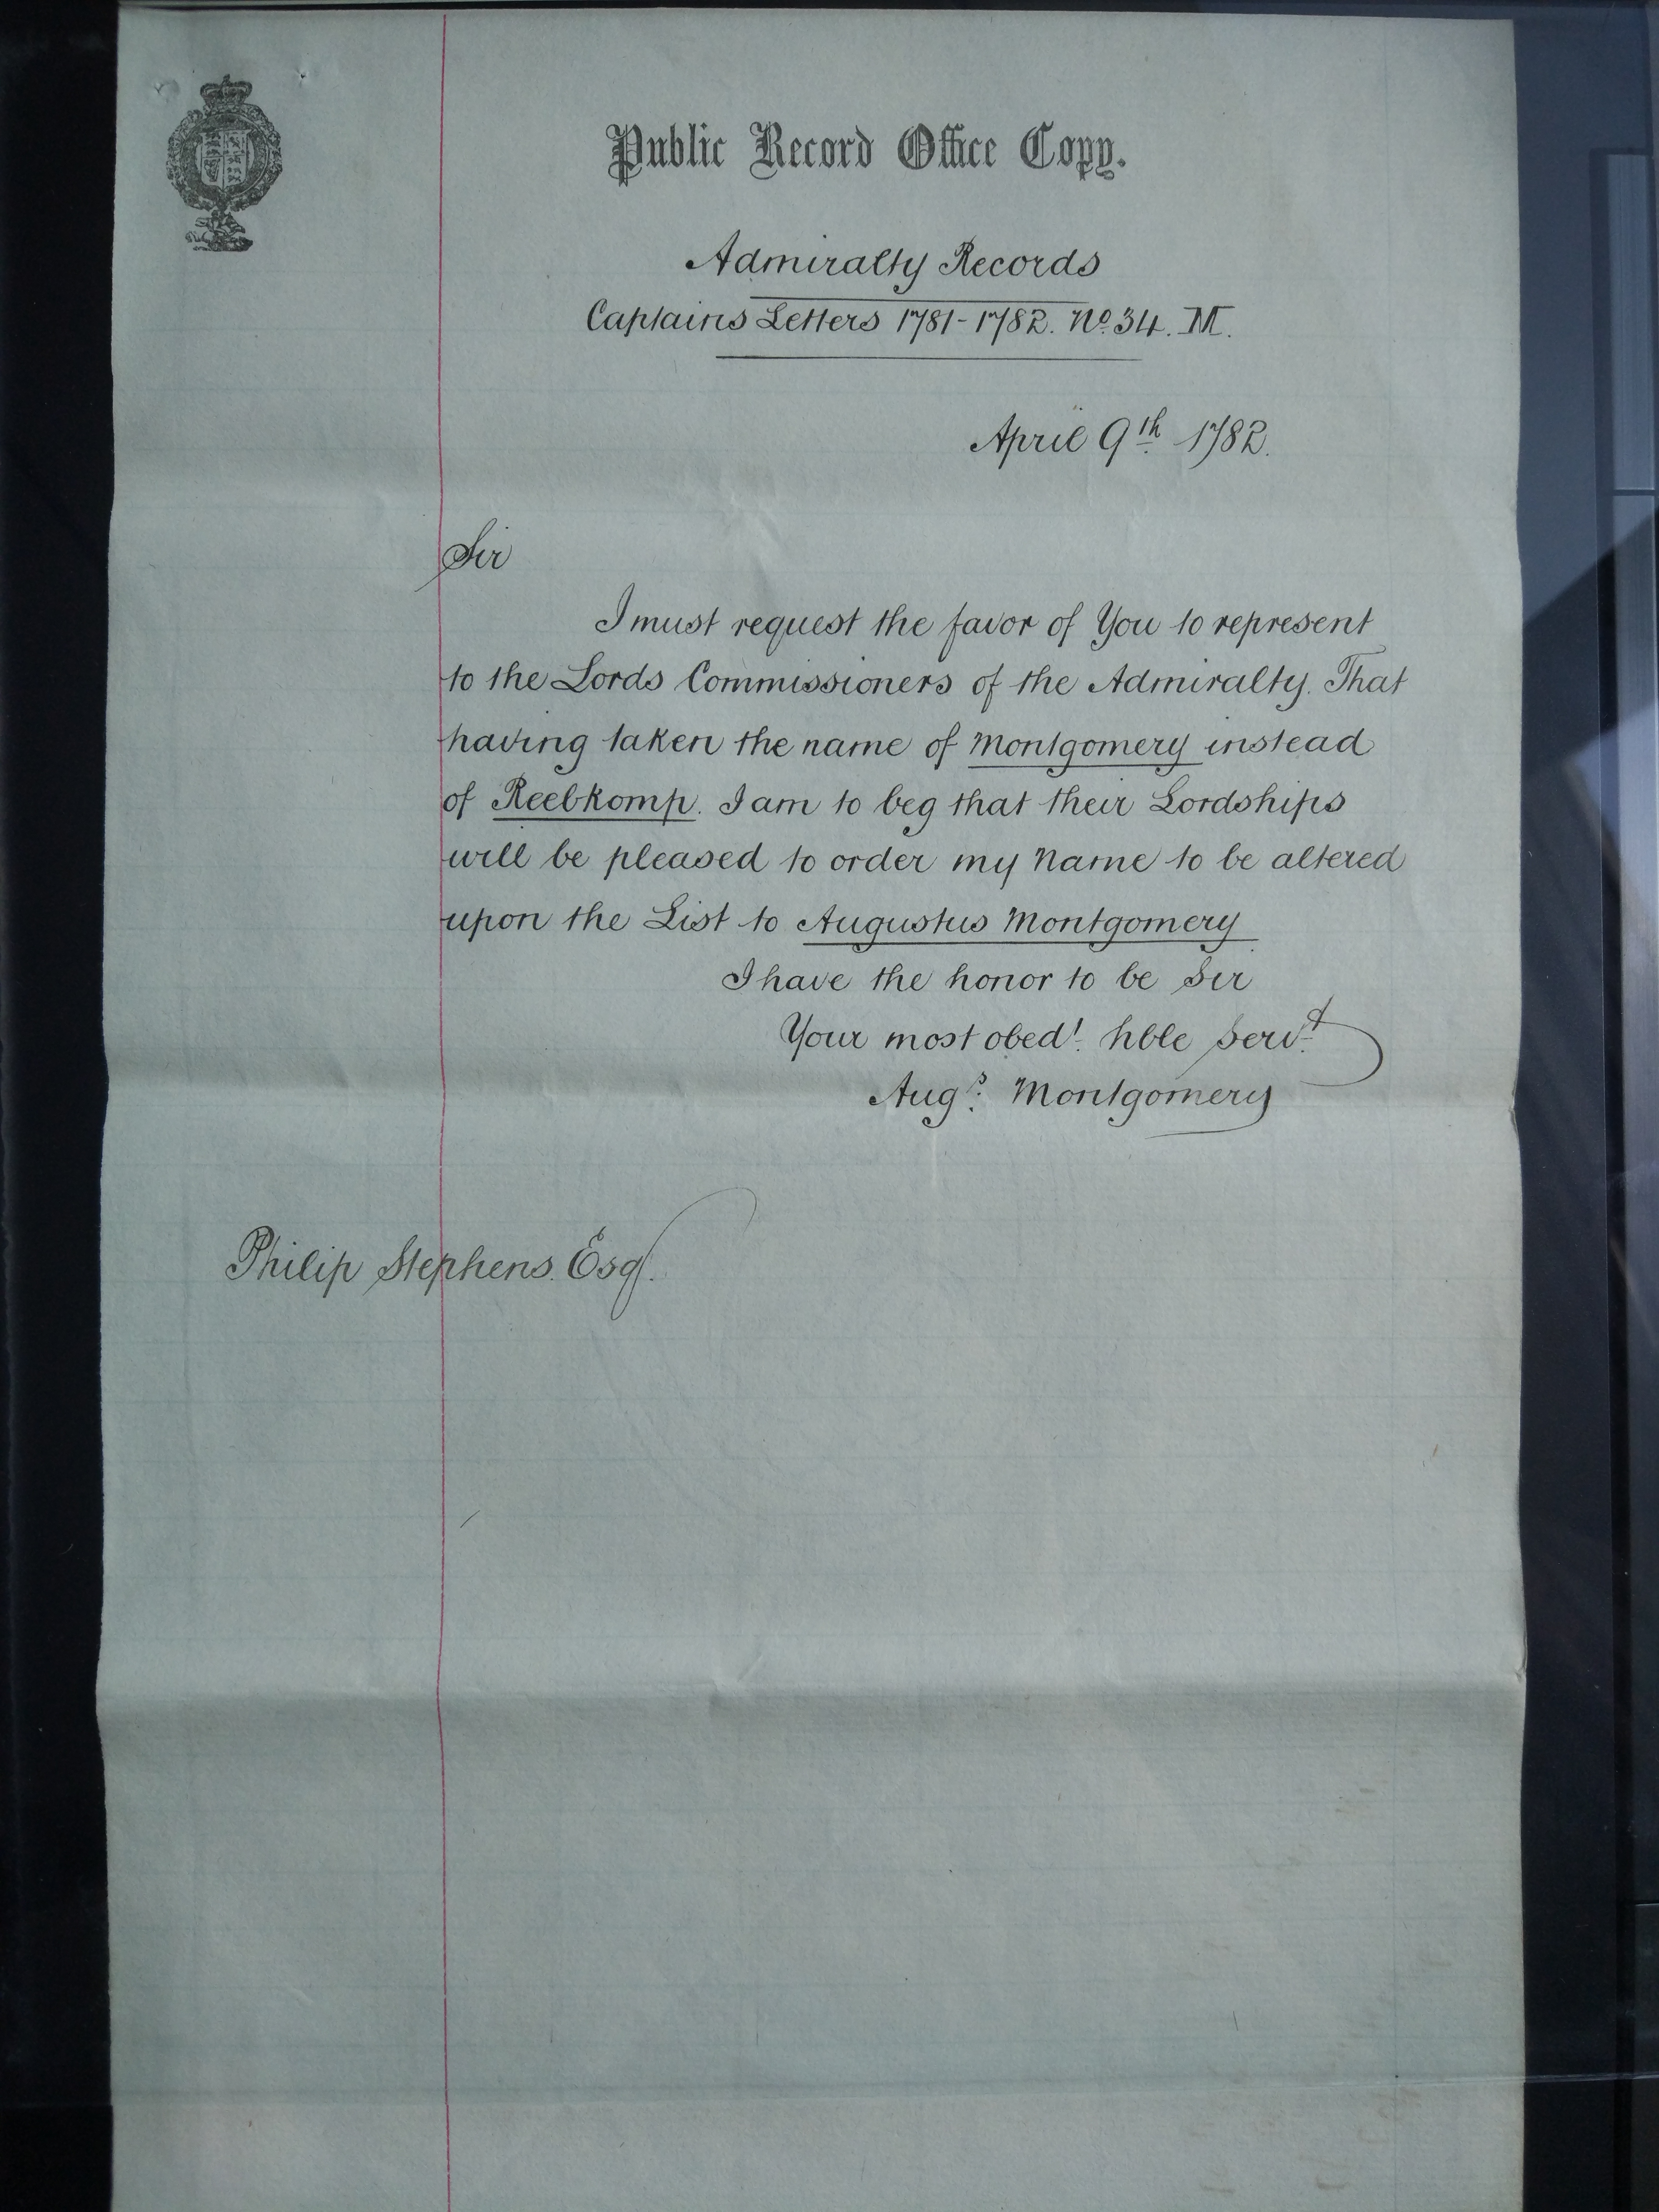 Public Record Office Copy.
Admiralty Records
Captains Letters 1781-1782. No. 34. M.
April 9th 1782.
Sir
I must request the favor of You to represent
to the Lords Commissioners of the Admiralty. That
having taken the name of Montgomery instead
of Reebkomp. I am to beg that their Lordships
will be pleased to order my Name to be altered
upon the List to Augustus Montgomery
I have the honor to be Sir
Your most obedt. hble Servt.
Augs. Montgomery
Philip Stephens. Esq.